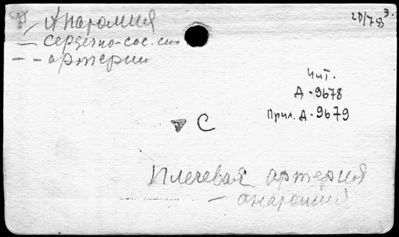 Анатомия
20/78 э.
— сердечно-сос. сис
— — артерии
Чит.
Д-9678
Прил. Д-9679
С
Плечевая артерия
— анатомия